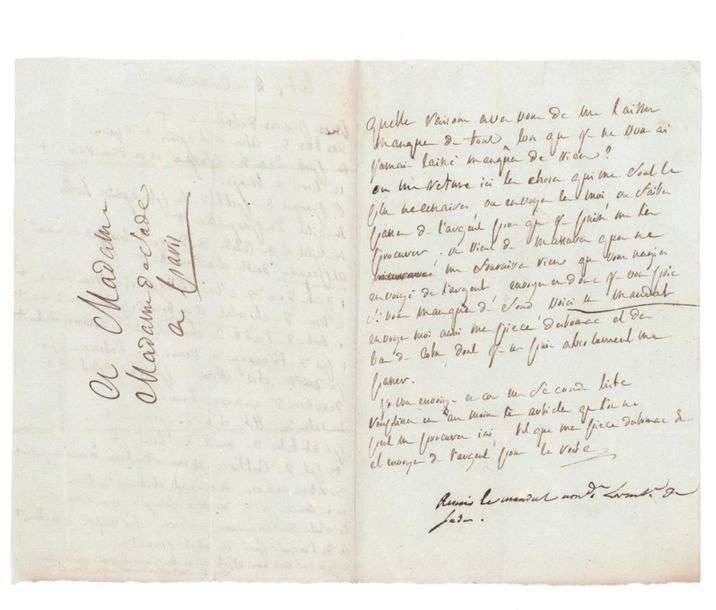 A Madame
Madame de Sade
a Paris
quelle raison avez vous de me laisser
manquer de tout, lors que je ne vous ai
jamais laissé manquer de rien?
on me retient ici les choses qui me sont le
plus necessaires ou envoyez les moi ou faites
passer de l'argent pour que je puisse me les
procurer. on vient de m'assurer que ne
me fournira rien que vous n'ayez
envoyé de l'argent envoyez en donc je vous prie
si vous manquez de fond voici un mandat
envoyez moi aussi ma piece d'estomac et des
bas de coton dont je ne puis absolument me
passer.
je vous envoye encor une seconde liste
en au moins les articles que l'on ne
peut me procurer ici, tel que ma piece d'estomac &
et envoyez de l'argent pour le reste
Remis le mandat a md. la de
Sade.